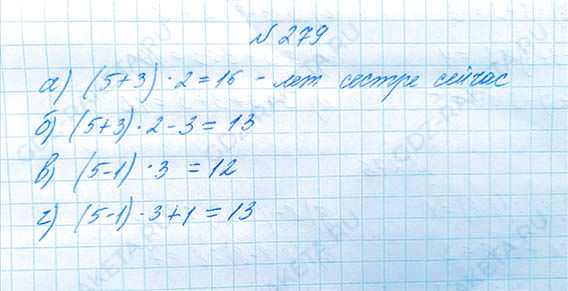 № 279
а) (5+3) · 2 = 16 - лет сестре сейчас
б) (5+3) · 2 - 3 = 13
в) (5-1) · 3 = 12
г) (5-1) · 3 + 1 = 13